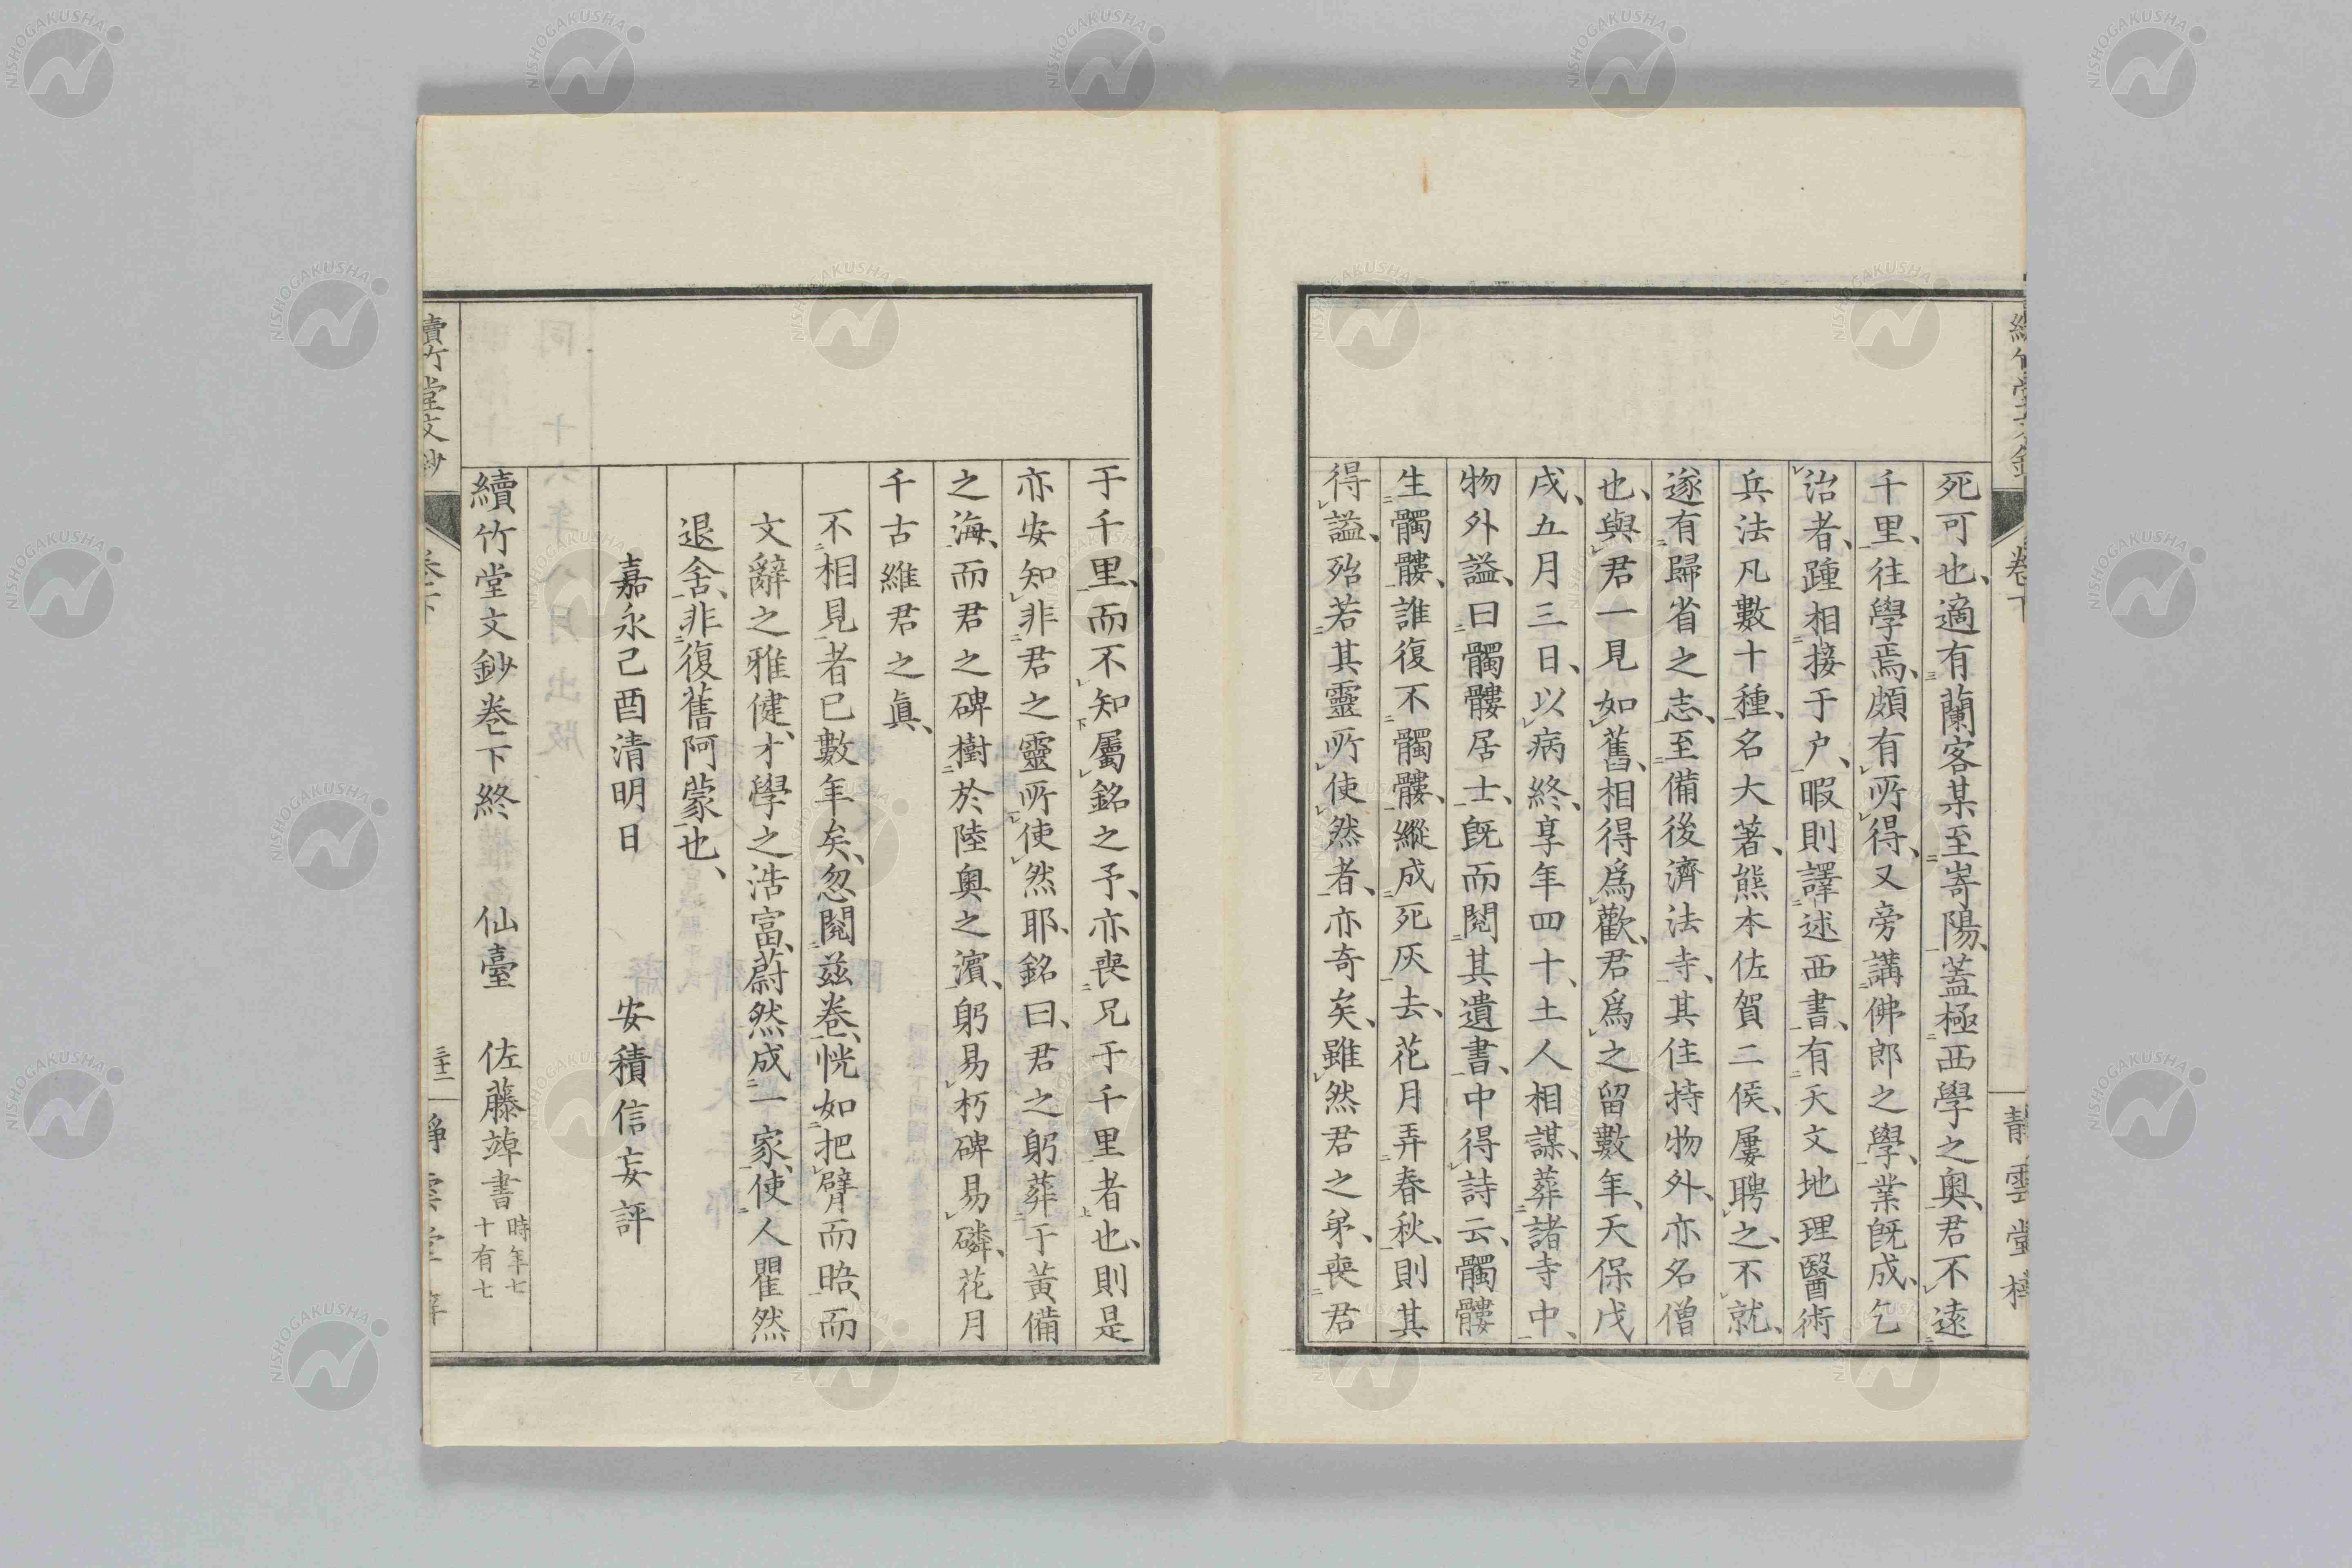 死可也、適有蘭客某至崎陽、蓋極西學之奧、君不遠
千里、往學焉、頗有所得、又旁講佛郎之學、業既成、乞
治者、踵相接于户、暇則譯述西書、有天文地理醫術
兵法凡數十種、名大著、熊本佐賀二侯、屢聘之、不就、
遂有歸省之志、至備後濟法寺、其住持物外、亦名僧
也、與君一見如舊、相得爲歡、君爲之留數年、天保戊
戌、五月三日、以病終、享年四十、土人相謀、葬諸寺中、
物外謚、曰髑髏居士、既而閱其遺書、中得詩云、髑髏
生髑髏、誰復不髑髏、縱成死灰去、花月弄春秋、則其
得謚、殆若其靈所使然者、亦奇矣、雖然君之弟、喪君
于千里、而不知屬銘之予、亦喪兄于千里者也、則是
亦安知非君之靈所使然耶、銘曰、君之躬葬于黃備
之海、而君之碑樹於陸奧之濱、躬易朽碑易磷、花月
千古維君之眞、
不相見者已數年矣、忽閱兹卷、恍如把臂而晤、而
文辭之雅健、才學之浩富、蔚然成一家、使人瞿然
退舍、非復舊阿蒙也、
嘉永己酉清明日 安積信妄評
續竹堂文鈔卷下終 仙臺 佐藤竨書 時年七十有七
續竹堂文鈔
卷下
三十二
靜雲堂梓
NISHOGAKUSHA